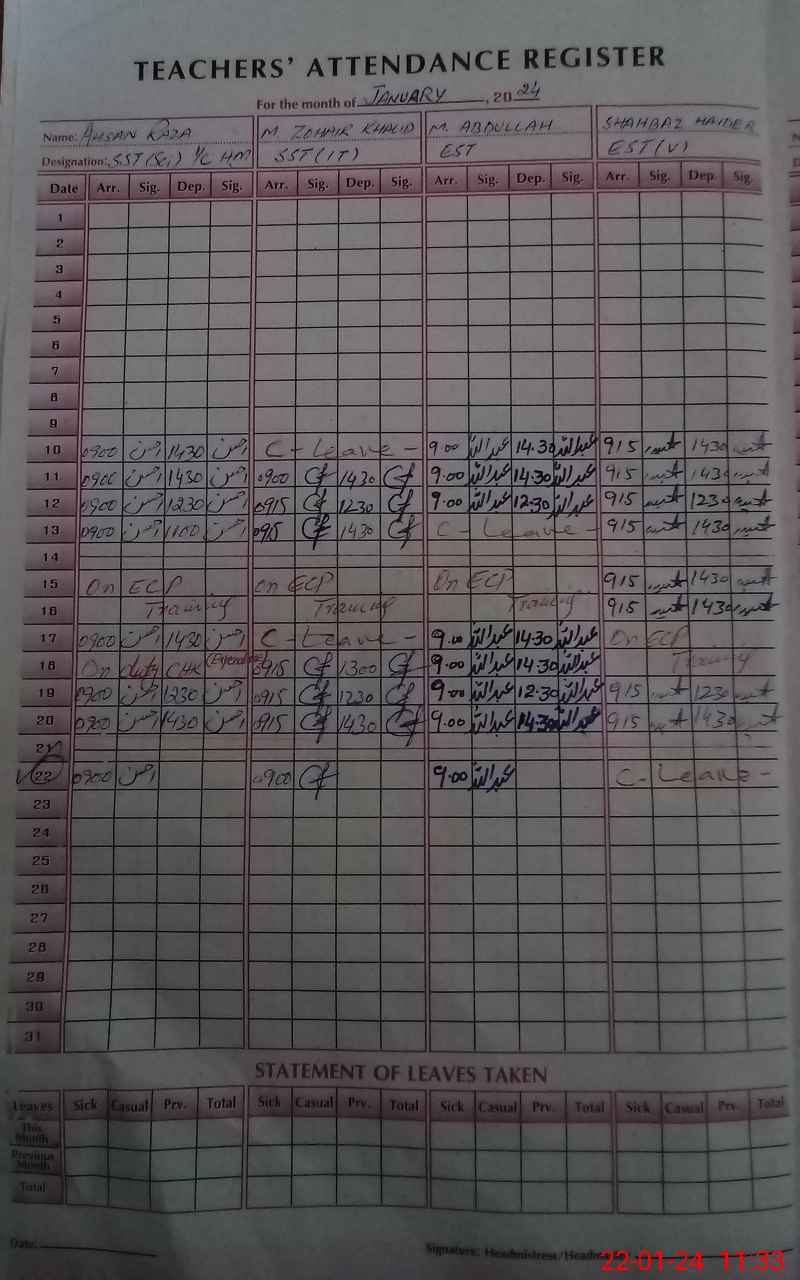 TEACHERS' ATTENDANCE REGISTER
For the month of JANUARY, 2024
Name: AHSAN RAZA M. ZOHAIR KHALID M. ABDULLAH SHAHBAZ HAIDER
Designation: SST(Sci) I/C HM SST(IT) EST EST(V)
Date Arr. Sig. Dep. Sig. Arr. Sig. Dep. Sig. Arr. Sig. Dep. Sig. Arr. Sig. Dep. Sig.
1
2
3
4
5
6
7
8
9
10 0900 احسن 1430 احسن C-Leave- 9.00 عبداللہ 14.30 عبداللہ 915 1430
11 0900 احسن 1430 احسن 0900 1430 9.00 عبداللہ 14.30 عبداللہ 915 1430
12 0900 احسن 1230 احسن 0915 1230 9.00 عبداللہ 12.30 عبداللہ 915 1230
13 0900 احسن 1100 احسن 0915 1430 C-Leave- 915 1430
14
15 On ECP On ECP On ECP 915 1430
16 Training Training Training 915 1430
17 0900 احسن 1430 احسن C-Leave- 9.00 عبداللہ 14.30 عبداللہ On ECP
18 On duty CHK 0915 1300 9.00 عبداللہ 14.30 عبداللہ Training
19 0900 احسن 1230 احسن 0915 1230 9.00 عبداللہ 12.30 عبداللہ 915 1230
20 0900 احسن 1430 احسن 0915 1430 9.00 عبداللہ 14.30 عبداللہ 915 1430
21
22 0900 احسن 0900 9.00 عبداللہ C-Leave-
23
24
25
26
27
28
29
30
31
STATEMENT OF LEAVES TAKEN
Leaves Sick Casual Prv. Total Sick Casual Prv. Total Sick Casual Prv. Total Sick Casual Prv. Total
This Month
Previous Month
Total
Date:
Signature: Headmistress/
22-01-24 11:33